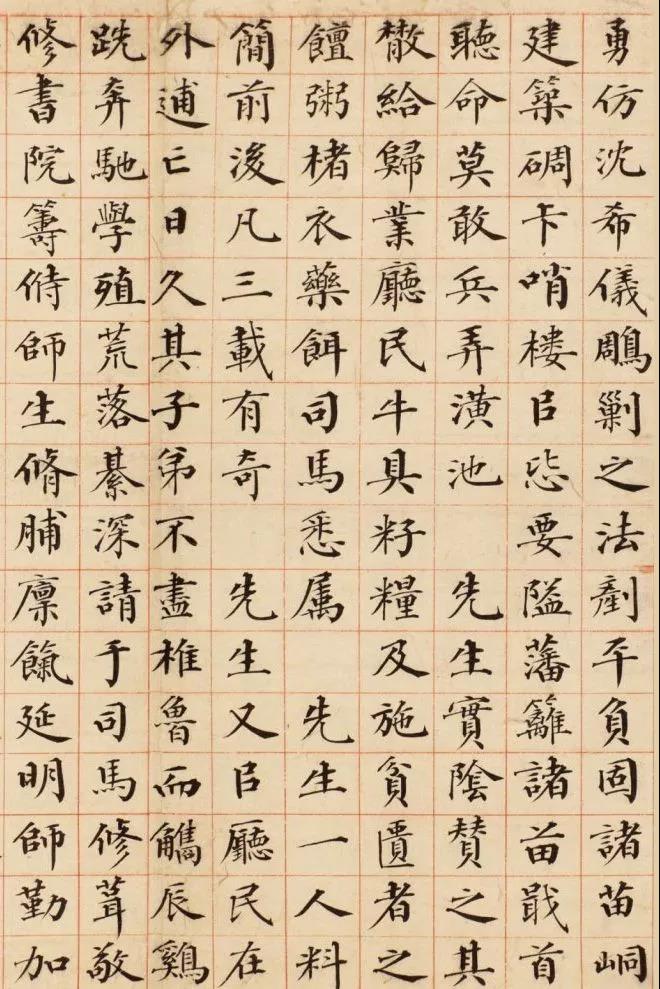 勇仿沈希儀鵰剿之法剷平負固諸苗峒
建築碉卡哨樓㠯毖要隘藩籬諸苗戢首
聽命莫敢兵弄潢池 先生實陰賛之其
散給歸業廳民牛具籽糧及施貧匱者之
饘粥楮衣藥餌司馬悉属 先生一人料
簡前後凡三載有奇 先生又㠯廳民在
外逋亡日久其子弟不盡椎魯而觿辰鷄
跣奔馳學殖荒落綦深請于司馬修葺敬
修書院籌偫師生脩脯廪餼延明師勤加